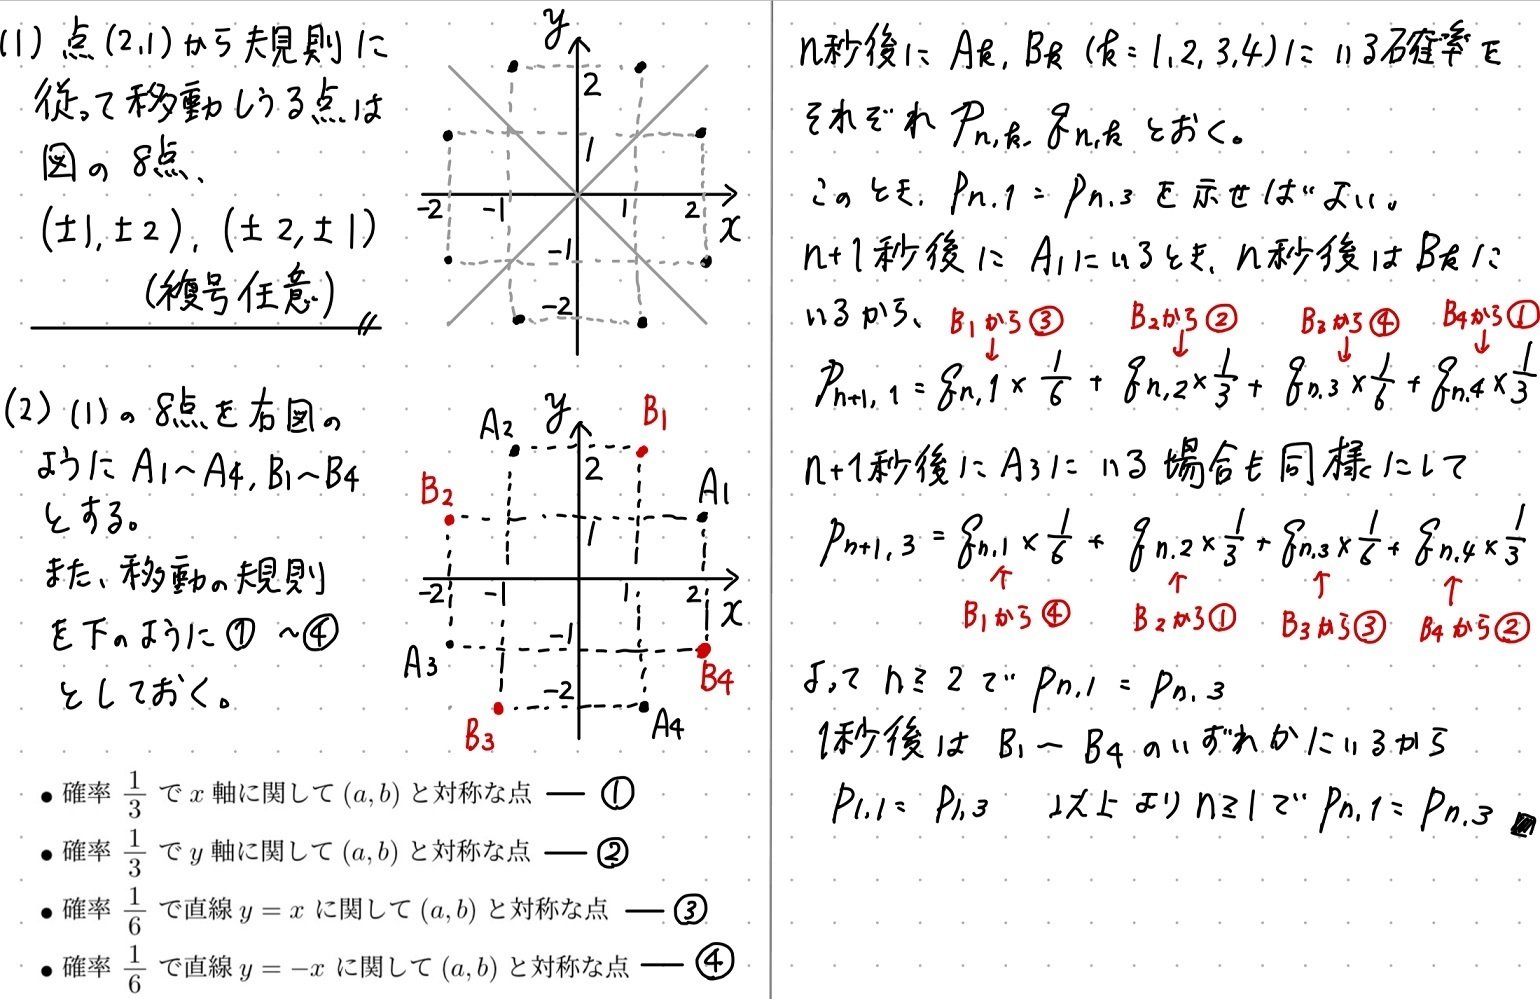 (1) 点(2,1)から規則に
従って移動しうる点は
図の8点、
(±1,±2), (±2,±1)
(複号任意)
y
2
1
-2 -1 1 2 x
-1
-2
(2) (1)の8点を右図の
ようにA1〜A4, B1〜B4
とする。
また、移動の規則
を下のように①〜④
としておく。
y
A2 B1
2
B2 A1
1
-2 -1 1 2 x
-1
A3 B4
-2
B3 A4
• 確率 1/3 で x 軸に関して (a, b) と対称な点 — ①
• 確率 1/3 で y 軸に関して (a, b) と対称な点 — ②
• 確率 1/6 で直線 y = x に関して (a, b) と対称な点 — ③
• 確率 1/6 で直線 y = −x に関して (a, b) と対称な点 — ④
n秒後に Ak, Bk (k=1,2,3,4)にいる確率を
それぞれ Pn,k, qn,k とおく。
このとき、Pn,1 = Pn,3 を示せばよい。
n+1秒後に A1にいるとき、n秒後は Bkに
いるから、
B1から③ B2から② B3から④ B4から①
↓ ↓ ↓ ↓
Pn+1,1 = qn,1 × 1/6 + qn,2 × 1/3 + qn,3 × 1/6 + qn,4 × 1/3
n+1秒後に A3にいる場合も同様にして
Pn+1,3 = qn,1 × 1/6 + qn,2 × 1/3 + qn,3 × 1/6 + qn,4 × 1/3
↑ ↑ ↑ ↑
B1から④ B2から① B3から③ B4から②
よって n≧2で Pn,1 = Pn,3
1秒後は B1〜B4 のいずれかにいるから
P1,1 = P1,3 以上より n≧1で Pn,1 = Pn,3